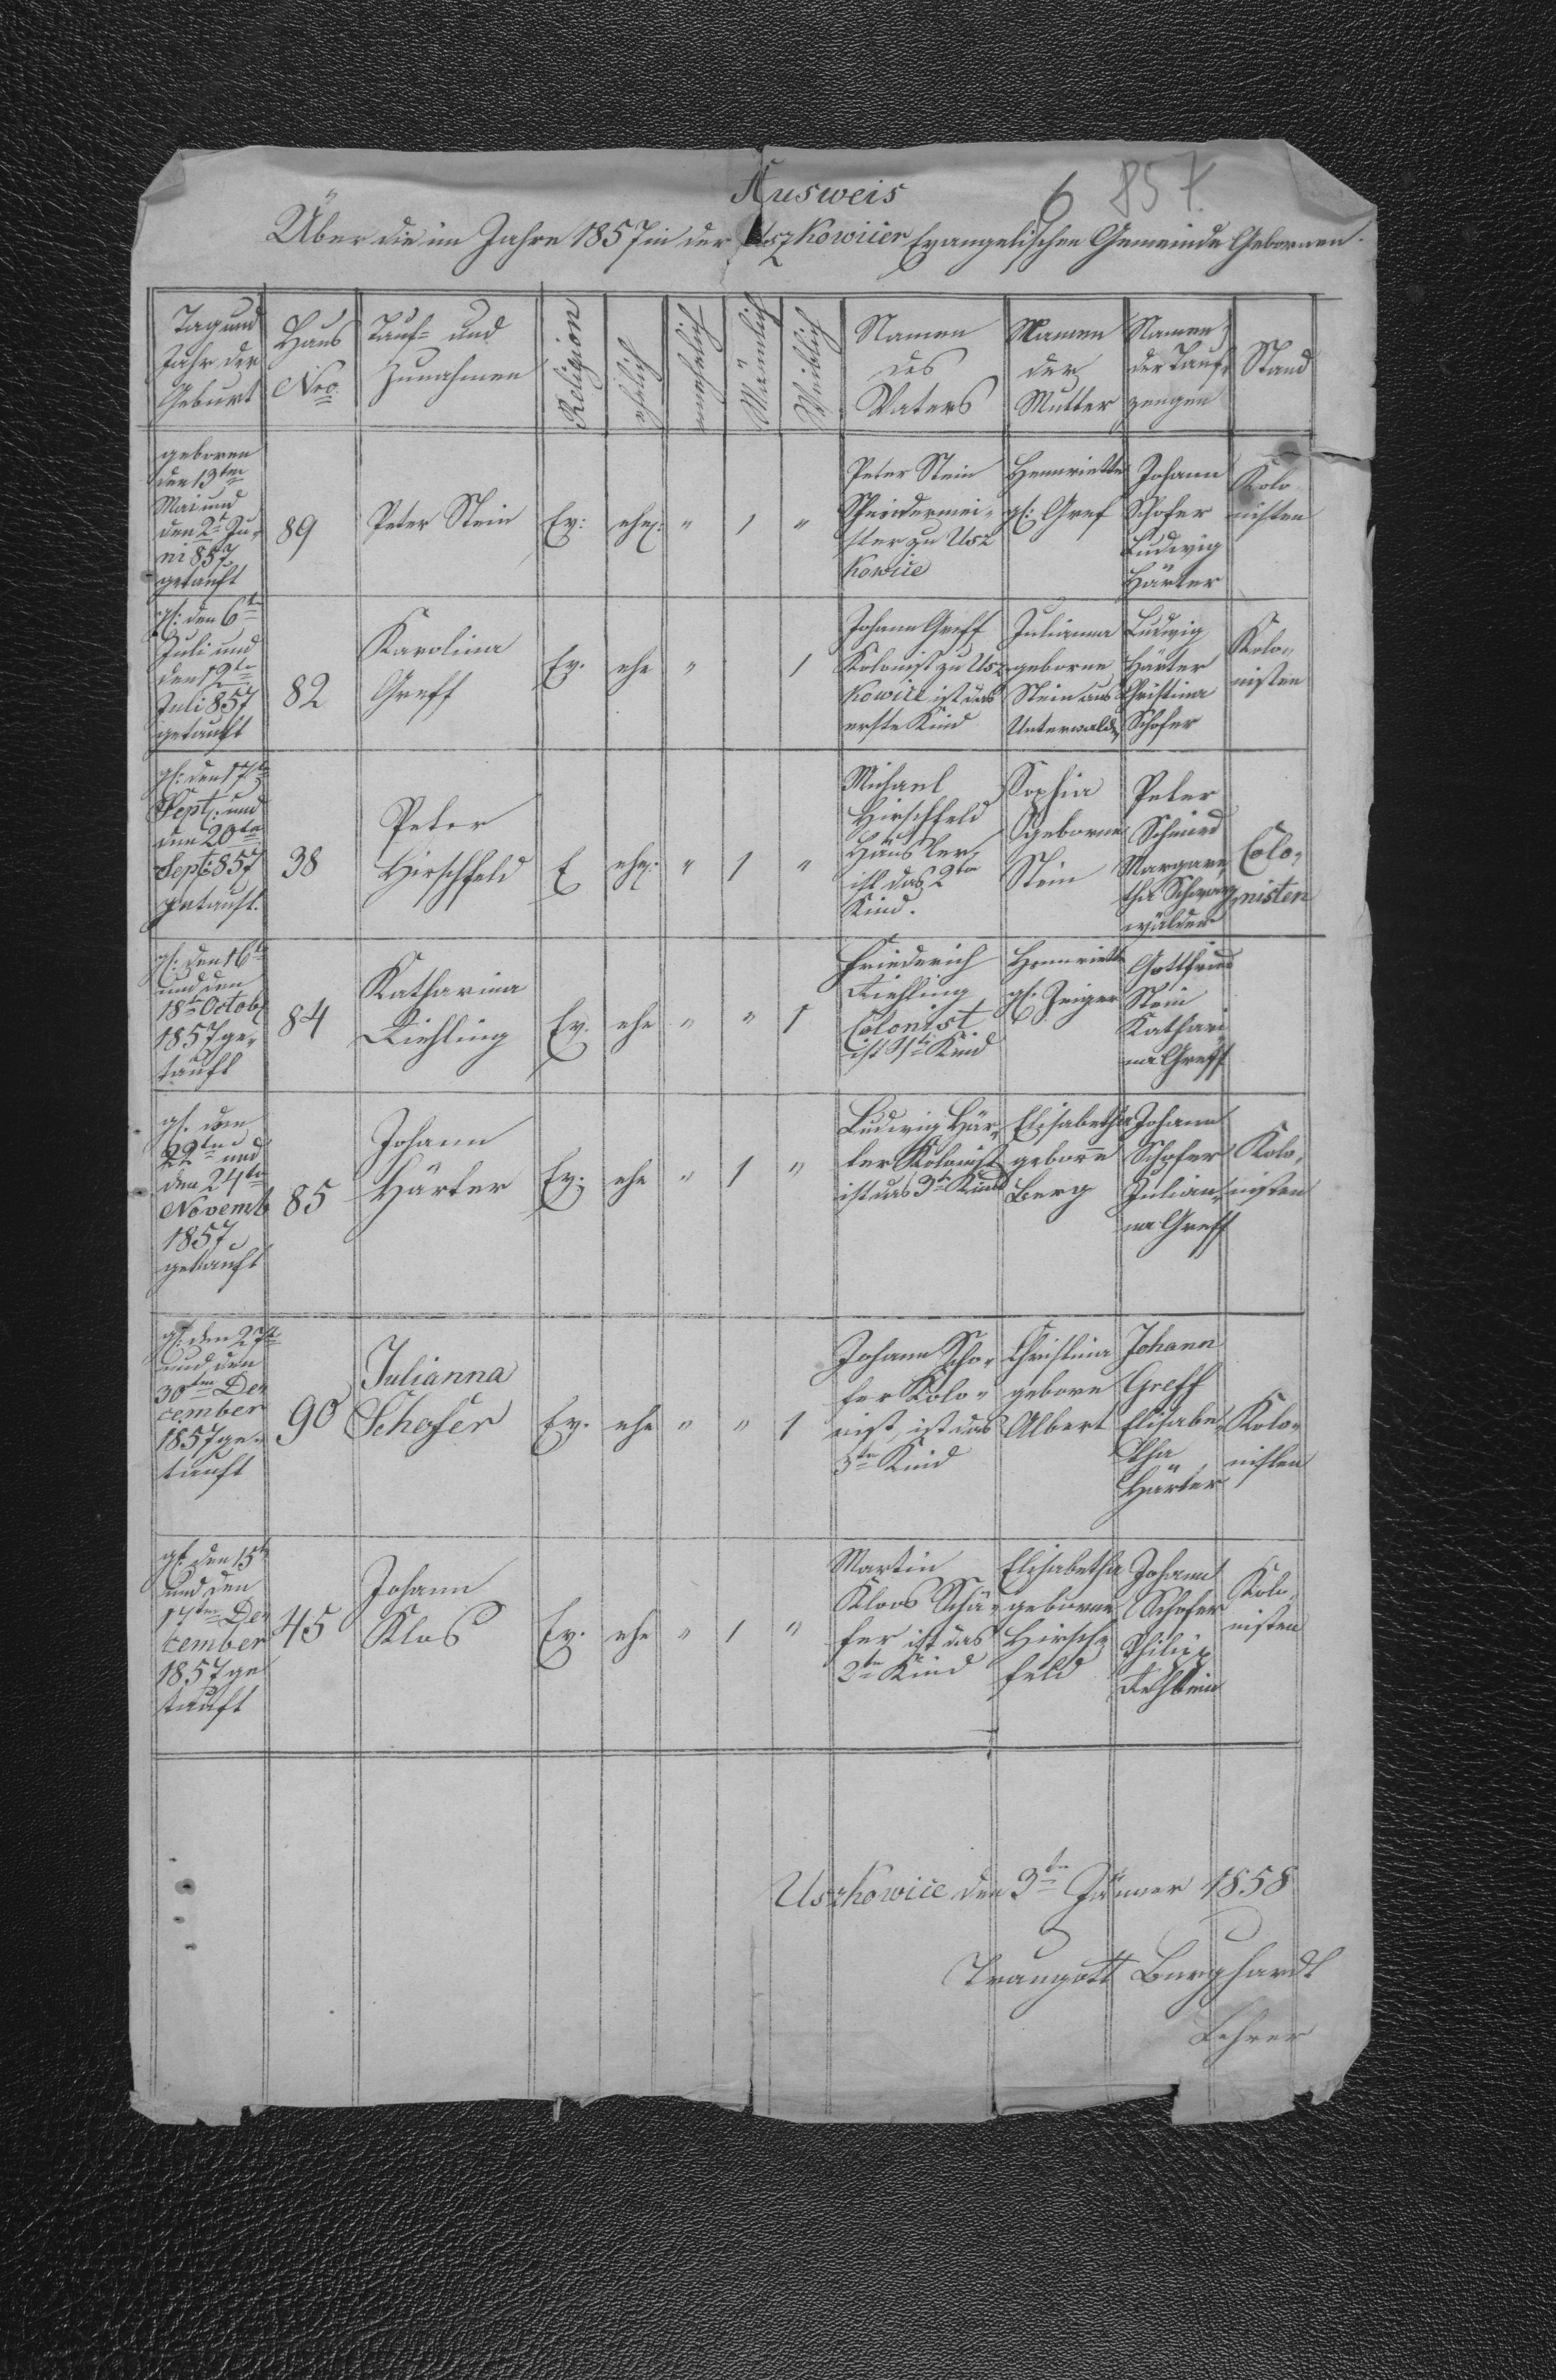 Ausweis
6 857.
Über die im Jahre 1857 in der Uszkowicer Evangelischen Gemeinde Gebornen.
Tag und
Jahr der
Geburt
Haus
Nro.
Tauf= und
Zunahmen
Religion
ehelich
unehelich
Männlich
Weiblich
Namen
des
Vaters
Namen
der
Mutter
Namen
der Tauf=
zeugen
Stand
geboren
den 13ten
Mai und
den 2t Ju=
ni 857
getauft
89
Peter Stein
Ev:
ehe:
"
1
"
Peter Stein
Schneidermei=
ster zu Usz
kowice
Hennriette
gb: Gref
Johann
Schofer
Ludwig
Härter
Kolo
nisten
gb: den 6t
Juli und
den 12ten
Juli 857
getauft
82
Karolina
Greff
Ev.
ehe
"
1
Johann Greff
Kolonist zu Usz
kowice ist das
erste Kind
Julianna
geborne
Stein aus
Unterwalden
Ludwig
Härter
Christina
Schofer
Kolo=
nisten
gb: den 17ten
Sept: und
den 20ten
Sept 857
getauft.
38
Peter
Hirschfeld
E
ehe:
"
1
"
Michael
Hirschfeld
Häusler
ist das 2te
Kind.
Sophia
geborne
Stein
Peter
Schmied
Margare
tha Schwarz
wälder
Colo=
nisten
gb: den 16ten
und den
18t Octob
1857 ge=
tauft
84
Katharina
Diehling
Ev.
ehe
"
"
1
Friederich
Diehling
Colonist
Kind
Hennriette
gb: Zeiger
Gottfried
Stein
Kathari
na Greff
gb. den
22ten und
den 24ten
Novemb
1857
getauft
85
Johann
Härter
Ev.
ehe
"
1
"
Ludwig Här=
ter Kolonist
ist das 3te Kind
Elisabetha
geborne
Berg
Johann
Schofer
Julian=
na Greff
Kolo=
nisten
gb: den 27t
und den
30ten De=
cember
1857 ge=
tauft
90
Julianna
Schofer
Ev.
ehe
"
"
1
Johann Scho=
fer Kolo=
nist, ist das
3te Kind
Christina
geborne
Albert
Johann
Greff
Elisabe=
tha
Härter
Kolo=
nisten
gb. den 15t
und den
17ten De=
cember
1857 ge
tauft
45
Johann
Klos
Ev.
ehe
"
1
"
Martin
Kloos Schä=
fer ist das
2te Kind
Elisabetha
geborne
Hirsch=
feld
Johann
Schofer
Philipp
Kolo
nisten
Uszkowice den 3ten Jänner 1858
Traugott Burghardt
Lehrer